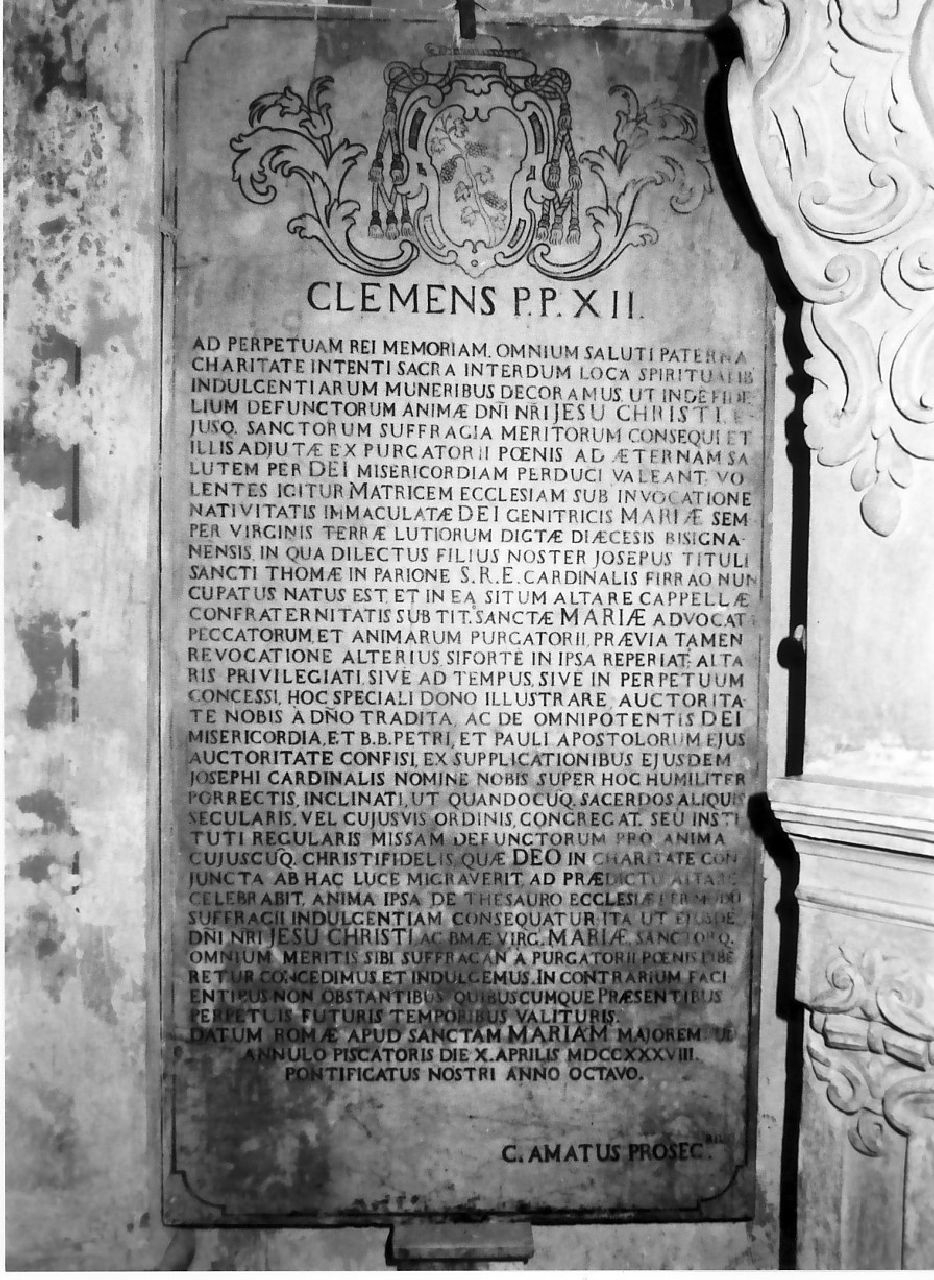 CLEMENS P.P. XII.
AD PERPETUAM REI MEMORIAM. OMNIUM SALUTI PATERNA
CHARITATE INTENTI SACRA INTERDUM LOCA SPIRITUALIB
INDULGENTIARUM MUNERIBUS DECORAMUS, UT INDE FIDE
LIUM DEFUNCTORUM ANIMÆ DÑI NRI JESU CHRISTI, E-
JUSQ. SANCTORUM SUFFRAGIA MERITORUM CONSEQUI ET
ILLIS ADJUTÆ EX PURGATORII PŒNIS AD ÆTERNAM SA
LUTEM PER DEI MISERICORDIAM PERDUCI VALEANT, VO
LENTES IGITUR MATRICEM ECCLESIAM SUB INVOCATIONE
NATIVITATIS IMMACULATÆ DEI GENITRICIS MARIÆ SEM
PER VIRGINIS TERRÆ LUTIORUM DICTÆ DIÆCESIS BISIGNA-
NENSIS, IN QUA DILECTUS FILIUS NOSTER JOSEPUS TITULI
SANCTI THOMÆ IN PARIONE S.R.E. CARDINALIS FIRRAO NUN
CUPATUS NATUS EST, ET IN EA SITUM ALTARE CAPPELLÆ
CONFRATERNITATIS SUB TIT. SANCTÆ MARIÆ ADVOCAT
PECCATORUM, ET ANIMARUM PURGATORII, PRÆVIA TAMEN
REVOCATIONE ALTERIUS, SIFORTE IN IPSA REPERIAT. ALTA
RIS PRIVILEGIATI, SIVE AD TEMPUS, SIVE IN PERPETUUM
CONCESSI, HOC SPECIALI DONO ILLUSTRARE, AUCTORITA-
TE NOBIS À DÑO TRADITA, AC DE OMNIPOTENTIS DEI
MISERICORDIA, ET B.B. PETRI, ET PAULI APOSTOLORUM EJUS
AUCTORITATE CONFISI, EX SUPPLICATIONIBUS EJUSDEM
JOSEPHI CARDINALIS NOMINE NOBIS SUPER HOC HUMILITER
PORRECTIS, INCLINATI, UT QUANDOCUQ. SACERDOS ALIQUIS
SECULARIS, VEL CUJUSVIS ORDINIS, CONGREGAT. SEU INSTI
TUTI REGULARIS MISSAM DEFUNCTORUM PRO ANIMA
CUJUSCUQ. CHRISTIFIDELIS, QUÆ DEO IN CHARITATE CON
JUNCTA AB HAC LUCE MIGRAVERIT, AD PRÆDICTU ALTARE
CELEBRABIT, ANIMA IPSA DE THESAURO ECCLESIÆ PER MODU
SUFFRAGII INDULGENTIAM CONSEQUATUR ITA UT EJUSDE
DÑI NRI JESU CHRISTI, AC BMÆ VIRG. MARIÆ, SANCTORQ.
OMNIUM MERITIS SIBI SUFFRAGAN A PURGATORII PŒNIS LIBE
RETUR CONCEDIMUS ET INDULGEMUS. IN CONTRARIUM FACI
ENTIBUS NON OBSTANTIBUS QUIBUSCUMQUE PRÆSENTIBUS
PERPETUIS FUTURIS TEMPORIBUS VALITURIS.
DATUM ROMÆ APUD SANCTAM MARIAM MAJOREM
ANNULO PISCATORIS DIE X. APRILIS MDCCXXXVIII.
PONTIFICATUS NOSTRI ANNO OCTAVO.
C. AMATUS PROSEC.